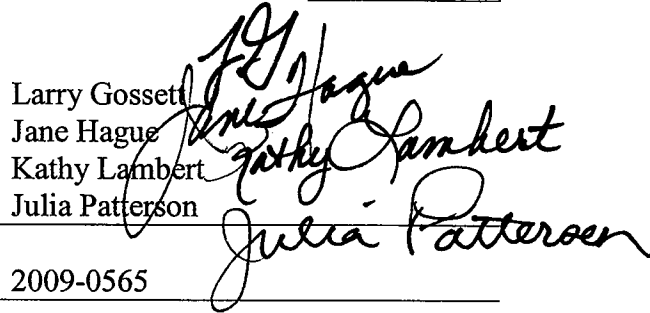 Larry Gossett LG
Jane Hague Jane Hague
Kathy Lambert Kathy Lambert
Julia Patterson Julia Patterson
2009-0565